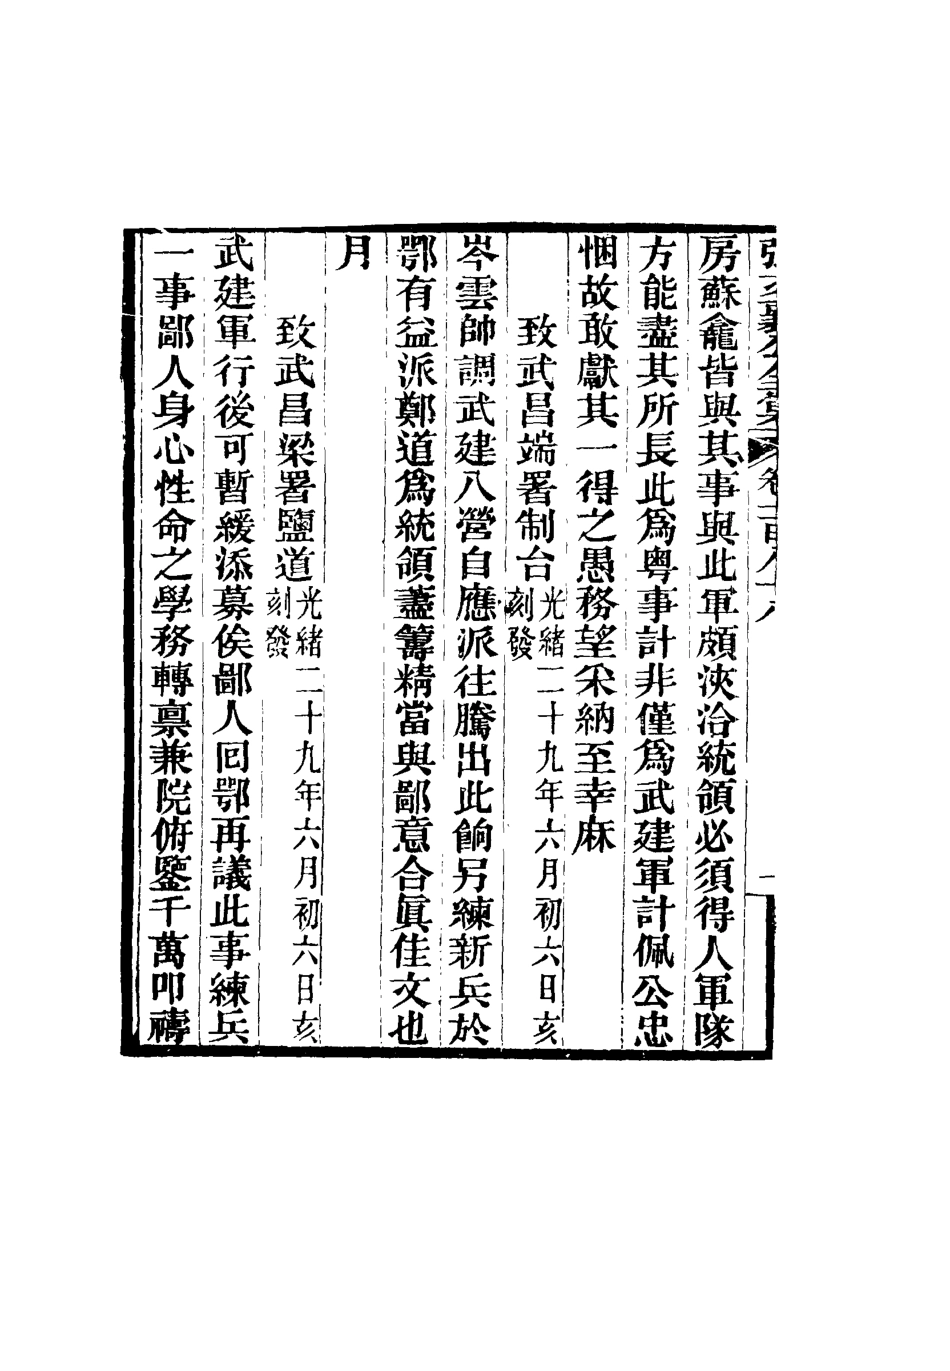 房蘇龕皆與其事與此軍頗浹洽統領必須得人軍隊
方能盡其所長此爲粵事計非僅爲武建軍計佩公忠
悃故敢獻其一得之愚務望采納至幸麻
致武昌端署制台光緒二十九年六月初六日亥刻發
岑雲帥調武建八營自應派往騰出此餉另練新兵於
鄂有益派鄭道爲統領藎籌精當與鄙意合眞佳文也
月
致武昌梁署鹽道光緒二十九年六月初六日亥刻發
武建軍行後可暫緩添募俟鄙人回鄂再議此事練兵
一事鄙人身心性命之學務轉稟兼院俯鑒千萬叩禱